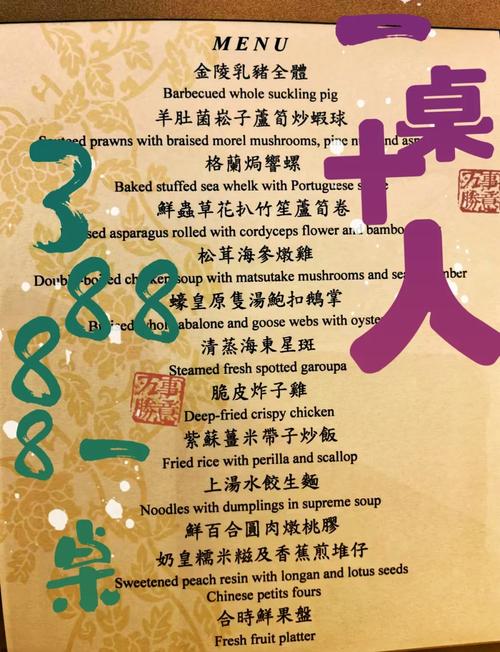 MENU
金陵乳豬全體
Barbecued whole suckling pig
羊肚菌崧子蘆筍炒蝦球
prawns with braised morel mushrooms, and
格蘭焗響螺
Baked stuffed sea whelk with Portuguese
鮮蟲草花扒竹笙蘆筍卷
asparagus rolled with cordyceps flower and
松茸海參燉雞
soup with matsutake mushrooms and
蠔皇原隻湯鮑扣鵝掌
abalone and goose webs with
清蒸海東星斑
Steamed fresh spotted garoupa
脆皮炸子雞
Deep-fried crispy chicken
紫蘇薑米帶子炒飯
Fried rice with perilla and scallop
上湯水餃生麵
Noodles with dumplings in supreme soup
鮮百合圓肉燉桃膠
奶皇糯米糍及香蕉煎堆仔
Sweetened peach resin with longan and lotus seeds
Chinese petits fours
合時鮮果盤
Fresh fruit platter
一桌
十人
3
88
8
8一